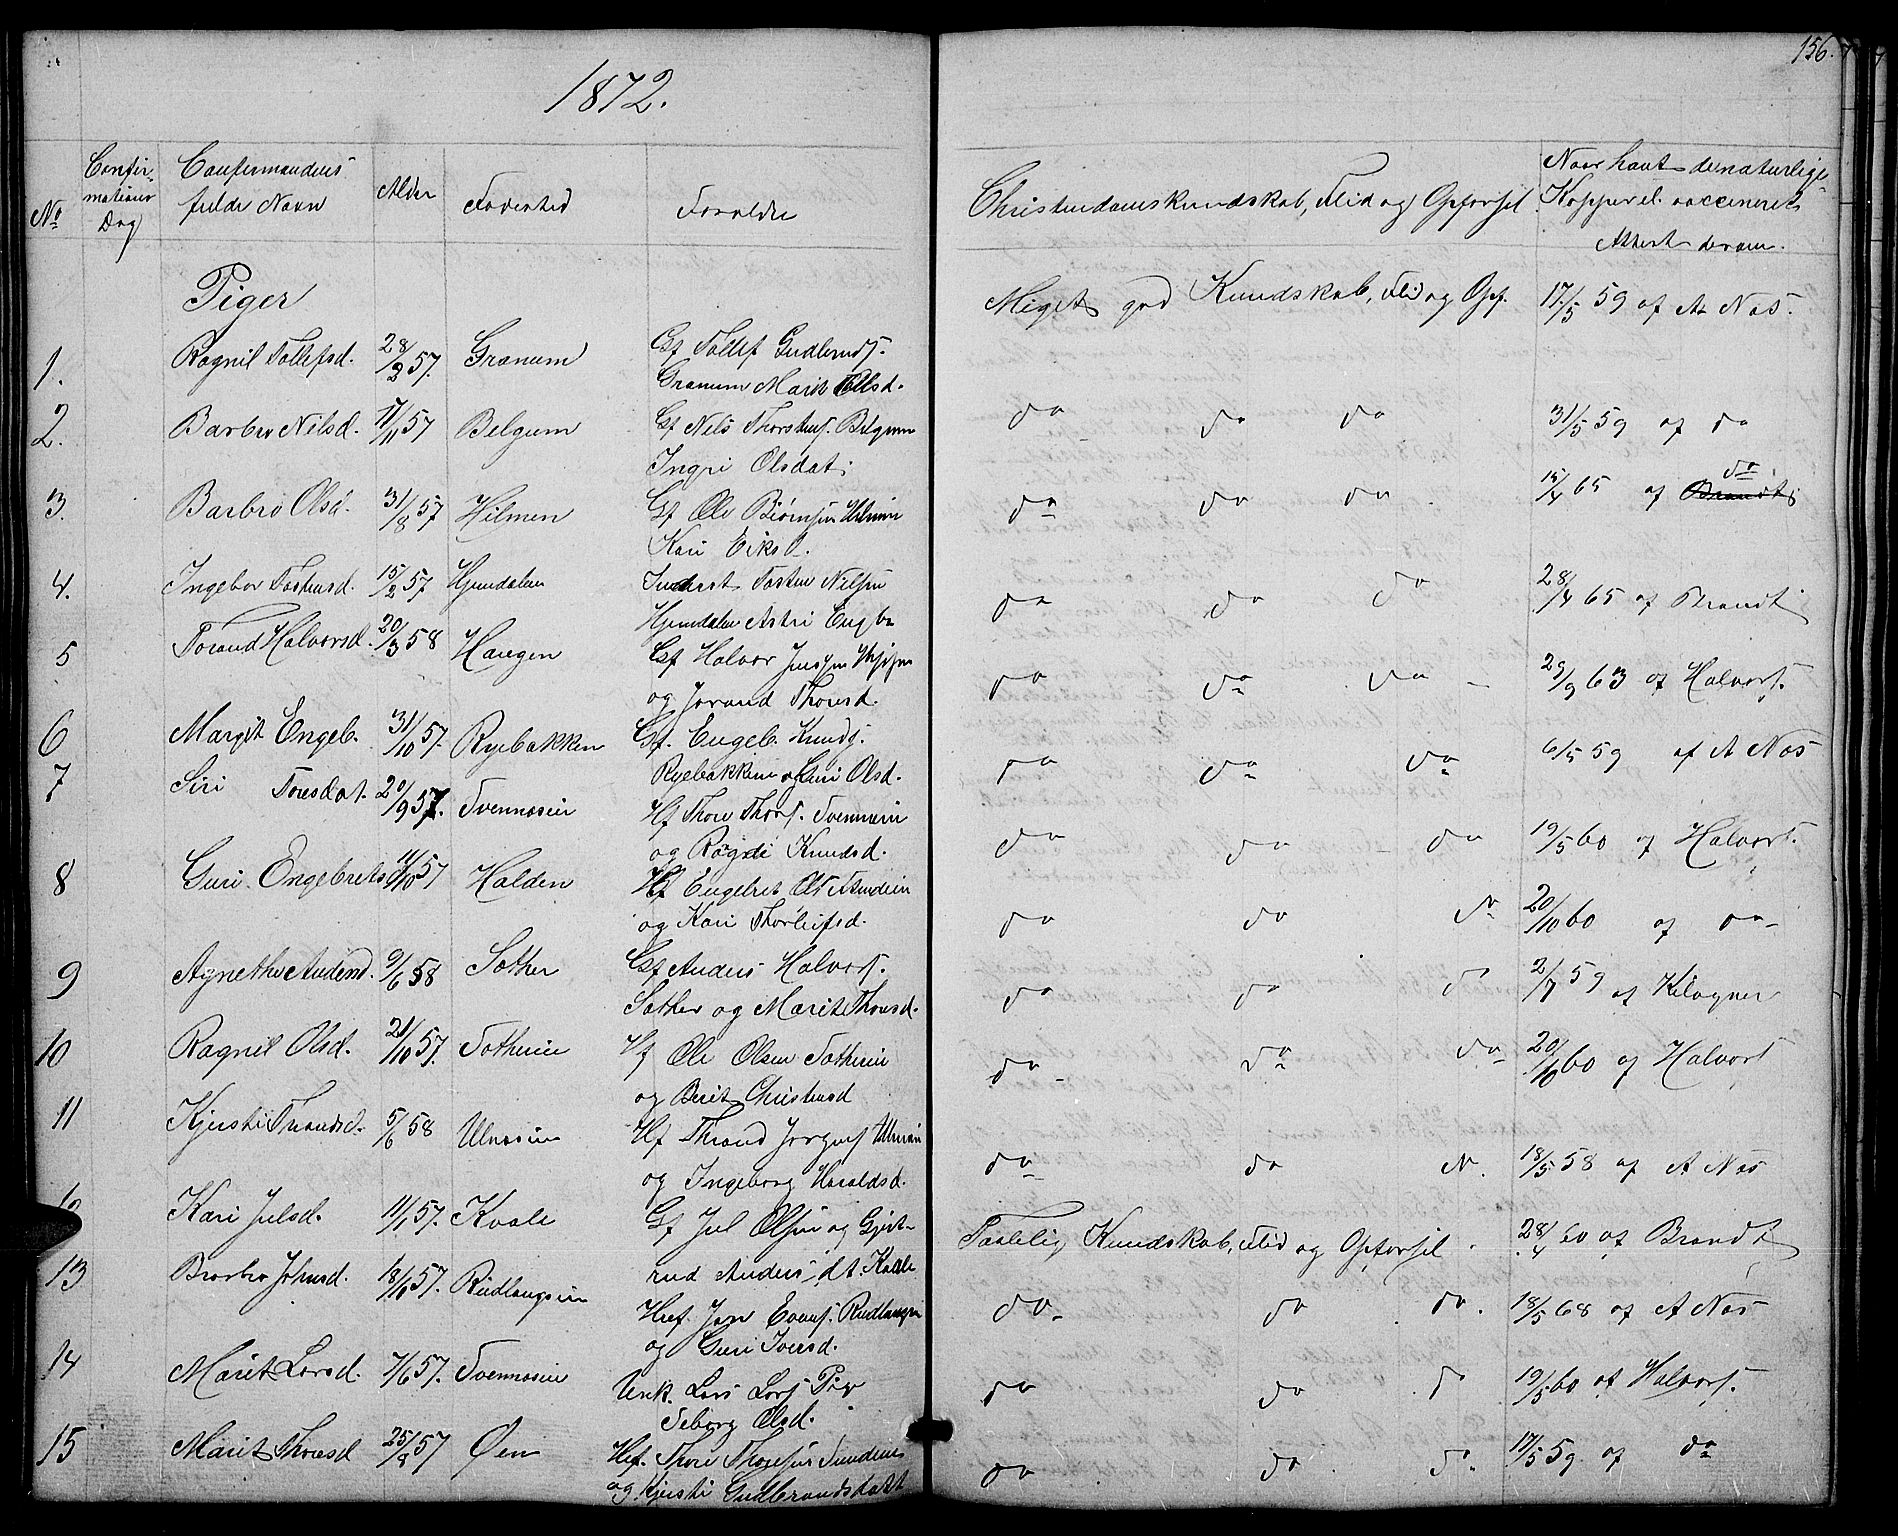 156.
1872.
No
Confir-
mations
Dag
Confirmandens
fulde Navn
Alder
Fødested
Forældre
Christendomskundskab, Flid og Opførsel
Naar havt de naturlige
Kopper el. vaccineret
Attest derom.
Piger
Meget god Kundskab, Flid og Opf. 17/5 59 af A Nos.
1. Ragnil Tollefsd. 28/2 57. Granum Gf Tollef Gudbrands.
Granum Marit Olsd.
2. Barbro Nilsd. 17/11 57 Belgum Gf Nels Thorstens. Belgum
Ingri Olsdat.
do do do 31/5 59 af do
3. Barbro Olsd. 31/8 57 Hilmen Gf Ole Biørnsen Hilmen
Kari Eriksd.
do do do 15/4 65 af Brandt do
4. Ingebor Tostensd. 15/2 57 Hjemdalen Inderst Tosten Nilsen
Hjemdalen Astri Engb
do do do 28/4 65 af Brandt
5 Torand Halvorsd. 20/3 58 Haugen Gf Halvor
og Jorand Thoresd.
do do do 29/9 63 af Halvors.
6 Margit Engeb. 31/10 57. Ryebakken Gf. Engeb. Knuds.
Ryebakken og Guri Olsd.
do do do 6/5 59 af A Nos
7 Siri Toresdat. 20/9 57. Svennesein Hf Thore Thors. Svennesein
og Rogndi Knudsd.
do do do 19/5 60 af Halvors.
8 Guri Engebrets 11/10 57 Halden Hf Engebret
og Kari Thorleifsd.
do do do 20/10 60 af do
9 Agnethe Andersd. 9/6 58 Sother Gf Anders Halvors.
Sother og Marit Thoresd.
do do d 2/7 59 af Kilogner
10 Ragnil Olsd. 21/10 57. Sotherein Hf Ole Olsen Sotherein
og Berit Christensd
do do do 20/10 60 af Halvors
11 Kjersti Trondsd. 5/6 58 Ulnesein Hf Thrond Jorgens Ulnesein
og Ingeborg Haraldsd.
do do 18/5 58 af A Nos
Kari Julsd. 11/1 57. Kvale Gf Jul Olsen og Gjert-
rud Andersdt. Kvale
Taalelig Kundskab, Flid og Opførsel. 28/4 60 af Brandt
13 Barbro Johnsd. 18/10 57. Rudlangsein Huf. Jon Evens. Rudlangsn
og Guri Iversd.
do do do. 18/5 68 af A Nos
14 Marit Larsd. 7/6 57. Svennesein Unk. Lars Lars Pige
Seborg Olsd.
do do d 19/5 60 af Halvors.
15 Marit Thoresd 25/8 57 Øen Huf. Thore
og Kjersti Gudbrandsdatt
do do do 17/5 59 af do